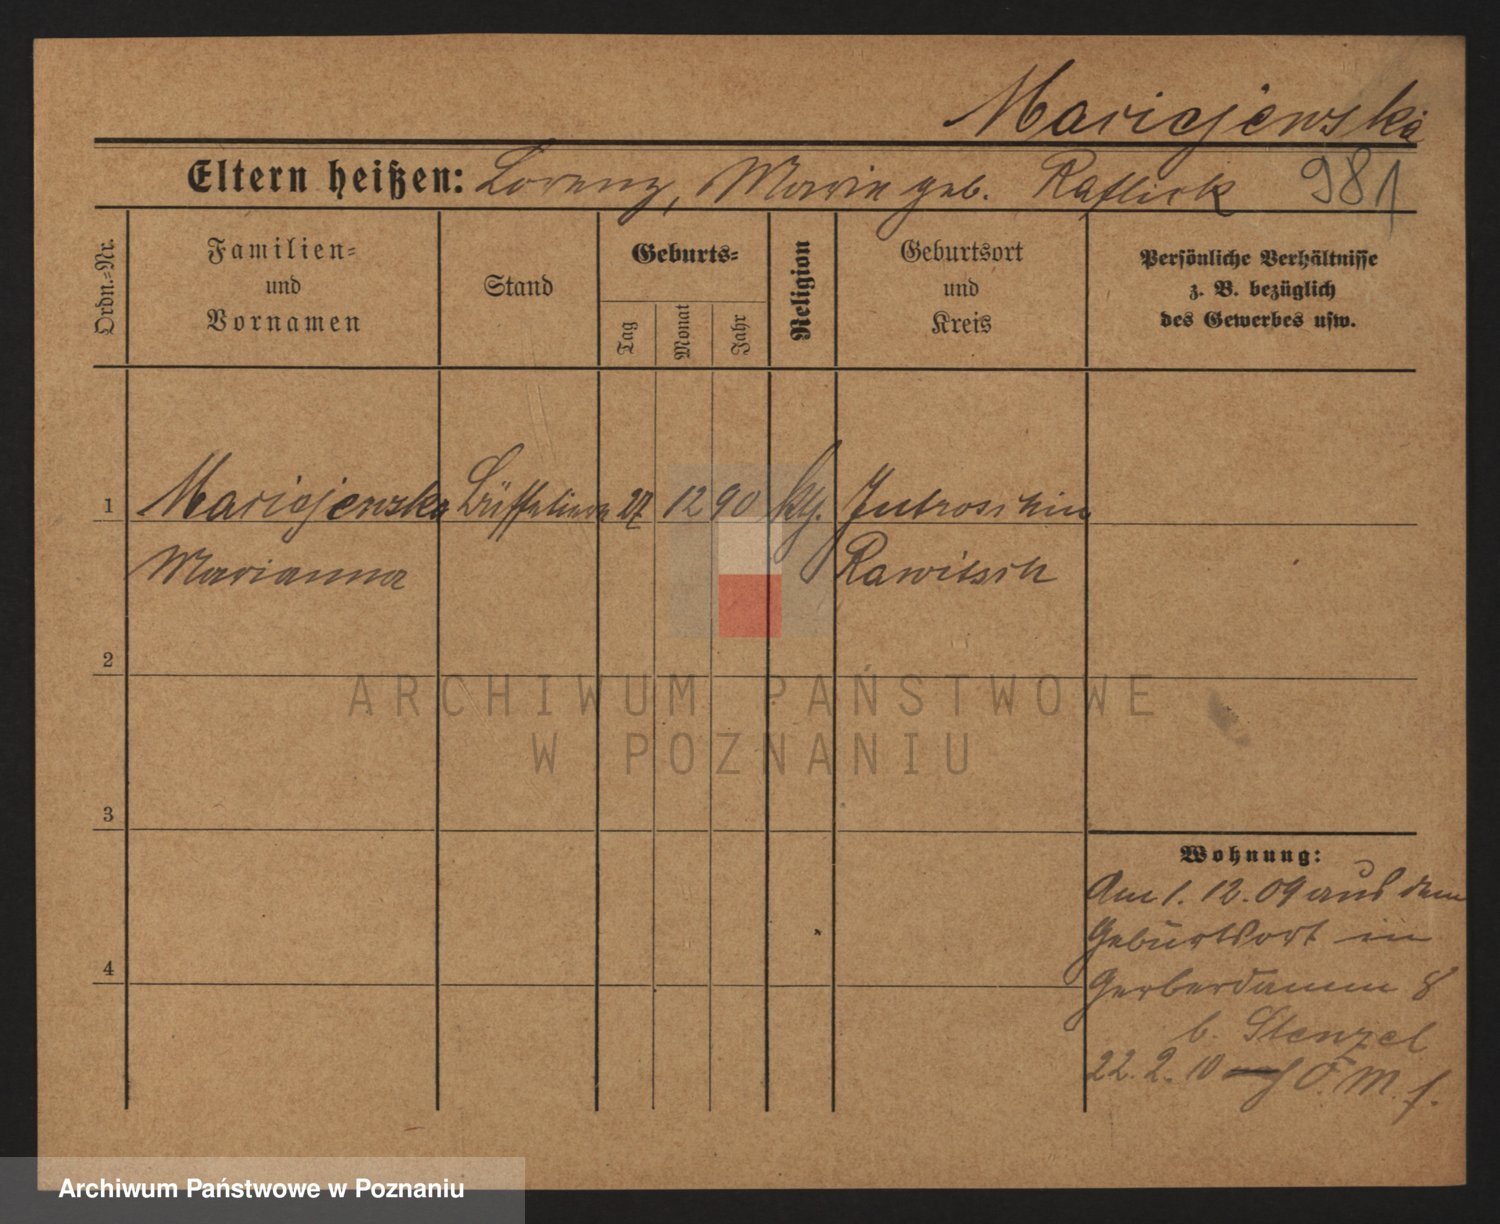 Maricjewska
Eltern heißen: Lorenz, Marie geb. Raflick 981
Ordn.=Nr.
Familien=
und
Vornamen
Stand
Geburts=
Tag
Monat
Jahr
Religion
Geburtsort
und
Kreis
Persönliche Verhältnisse
z. B. bezüglich
des Gewerbes usw.
1 Maricjewska Büffetiere 27 12 90 kth. Jutroschin
Marianna Rawitsch
2
3
4
Wohnung:
Am 1. 12. 09 aus dem
Geburtsort in
Gerberdamm 8
b. Stenzel
22. 2. 10
ARCHIWUM PAŃSTWOWE
W POZNANIU
Archiwum Państwowe w Poznaniu